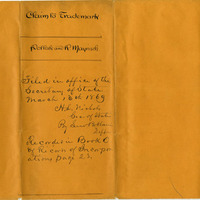 Claim to Trademark
Pollak and K Mayrish
Filed in office of the
Secretary of State
March 16th 1869
H. L. Nichols
Sec of State
By
Recorded in Book 
of Record of Incorpor
ations page 23.